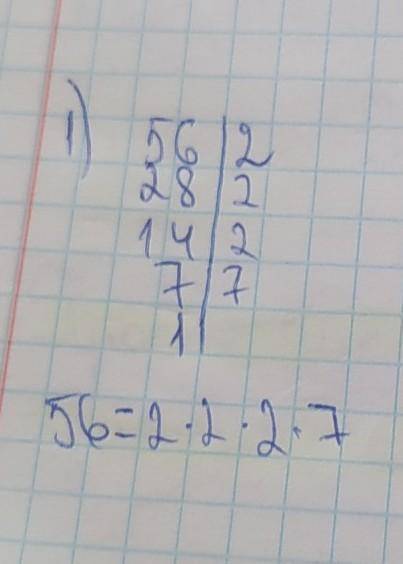 1) 56 | 2
28 | 2
14 | 2
7 | 7
1 |
56=2·2·2·7